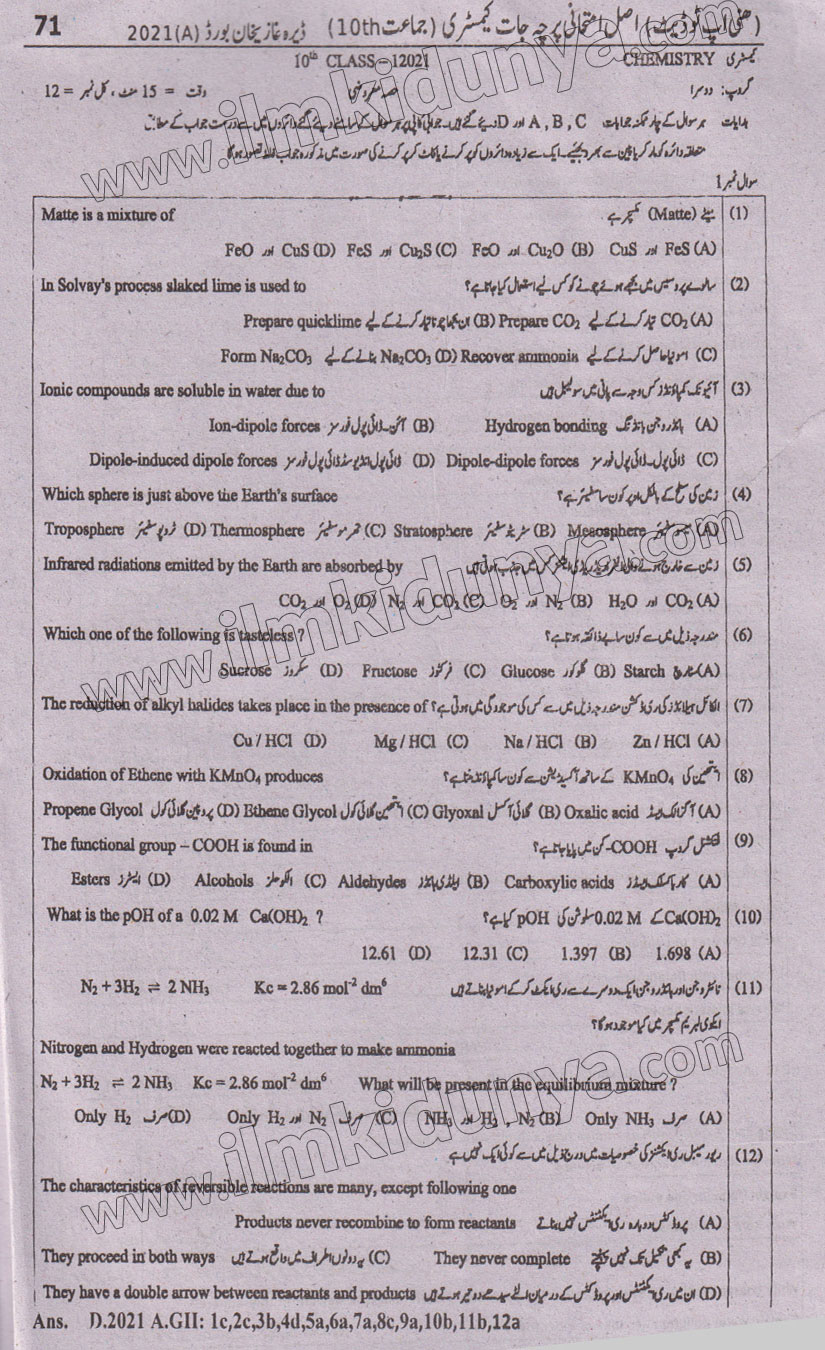 71 ڈیرہ غازیخان بورڈ 2021 (A) (ھنی اپ ٹو ڈیٹ) اصل امتحانی پرچہ جات کیمسٹری (جماعت 10th)
کیمسٹری CHEMISTRY 10th CLASS – 12021
گروپ: دوسرا حصہ معروضی وقت = 15 منٹ ، کل نمبر = 12
ہدایات ہر سوال کے چار ممکنہ جوابات A , B , C اور D دیئے گئے ہیں۔ جوابی کاپی پر ہر سوال کے سامنے دیئے گئے دائروں میں سے درست جواب کے مطابق
متعلقہ دائرہ کو مارکر یا پین سے بھر دیجئیے۔ ایک سے زیادہ دائروں کو پُر کرنے یا کاٹ کر پُر کرنے کی صورت میں مذکورہ جواب غلط تصور ہوگا
سوال نمبر 1
(1) میٹے (Matte) مکسچر ہے Matte is a mixture of
FeS (A) اور CuS (B) Cu₂O اور FeO (C) Cu₂S اور FeS (D) CuS اور FeO
(2) سالوے پروسیس میں بجھے ہوئے چونے کو کس لیے استعمال کیا جاتا ہے؟ In Solvay's process slaked lime is used to
(A) CO₂ تیار کرنے کے لیے Prepare CO₂ (B) ان بجھا چونا تیار کرنے کے لیے Prepare quicklime
(C) امونیا حاصل کرنے کے لیے Recover ammonia (D) Na₂CO₃ بنانے کے لیے Form Na₂CO₃
(3) آئیونک کمپاؤنڈز کس وجہ سے پانی میں سولیبل ہیں Ionic compounds are soluble in water due to
(A) ہائڈروجن بانڈنگ Hydrogen bonding (B) آئن۔ڈائی پول فورسز Ion-dipole forces
(C) ڈائی پول۔ڈائی پول فورسز Dipole-dipole forces (D) ڈائی پول انڈیوسڈ ڈائی پول فورسز Dipole-induced dipole forces
(4) زمین کی سطح کے بالکل اوپر کون سا سفیئر ہے؟ Which sphere is just above the Earth's surface
(A) میسوسفیئر Mesosphere (B) سٹریٹوسفیئر Stratosphere (C) تھرموسفیئر Thermosphere (D) ٹروپوسفیئر Troposphere
(5) زمین سے خارج ہونے والی انفراریڈ ریڈی ایشنز کس میں جذب ہوتی ہیں Infrared radiations emitted by the Earth are absorbed by
(A) CO₂ اور H₂O (B) N₂ اور O₂ (C) CO₂ اور N₂ (D) O₂ اور CO₂
(6) مندرجہ ذیل میں سے کون سا بے ذائقہ ہوتا ہے؟ Which one of the following is tasteless ?
(A) سٹارچ Starch (B) گلوکوز Glucose (C) فرکٹوز Fructose (D) سکروز Sucrose
(7) الکائل ہیلائڈز کی ریڈکشن مندرجہ ذیل میں سے کس کی موجودگی میں ہوتی ہے؟ The reduction of alkyl halides takes place in the presence of
(A) Zn / HCl (B) Na / HCl (C) Mg / HCl (D) Cu / HCl
(8) ایتھین کی KMnO₄ کے ساتھ آکسیڈیشن سے کون سا کمپاؤنڈ بنتا ہے؟ Oxidation of Ethene with KMnO₄ produces
(A) آگزالک ایسڈ Oxalic acid (B) گلائی آکسل Glyoxal (C) ایتھین گلائی کول Ethene Glycol (D) پروپین گلائی کول Propene Glycol
(9) فنکشنل گروپ COOH- کن میں پایا جاتا ہے؟ The functional group – COOH is found in
(A) کاربوآکسلک ایسڈز Carboxylic acids (B) ایلڈی ہائڈز Aldehydes (C) الکوحلز Alcohols (D) ایسٹرز Esters
(10) Ca(OH)₂ کے 0.02 M سلوشن کی pOH کیا ہے؟ What is the pOH of a 0.02 M Ca(OH)₂ ?
(A) 1.698 (B) 1.397 (C) 12.31 (D) 12.61
(11) نائٹروجن اور ہائڈروجن ایک دوسرے سے ری ایکٹ کر کے امونیا بناتے ہیں N₂ + 3H₂ ⇌ 2 NH₃ Kc = 2.86 mol⁻² dm⁶
ایکوی لبریم مکسچر میں کیا موجود ہوگا؟
Nitrogen and Hydrogen were reacted together to make ammonia
N₂ + 3H₂ ⇌ 2 NH₃ Kc = 2.86 mol⁻² dm⁶ What will be present in the equilibrium mixture ?
(A) صرف NH₃ Only NH₃ (B) N₂ , H₂ اور NH₃ (C) صرف N₂ اور H₂ Only H₂ (D) صرف H₂ Only H₂
(12) ریورسیبل ری ایکشنز کی خصوصیات میں درج ذیل میں سے کوئی ایک نہیں ہے
The characteristics of reversible reactions are many, except following one
(A) پروڈکٹس دوبارہ ری ایکٹنٹس نہیں بناتے Products never recombine to form reactants
(B) یہ کبھی تکمیل تک نہیں پہنچتے They never complete (C) یہ دونوں اطراف میں واقع ہوتے ہیں They proceed in both ways
(D) ان میں ری ایکٹنٹس اور پروڈکٹس کے درمیان الٹے سیدھے دو تیر ہوتے ہیں They have a double arrow between reactants and products
Ans. D.2021 A.GII: 1c,2c,3b,4d,5a,6a,7a,8c,9a,10b,11b,12a
www.ilmkidunya.com
www.ilmkidunya.com
www.ilmkidunya.com